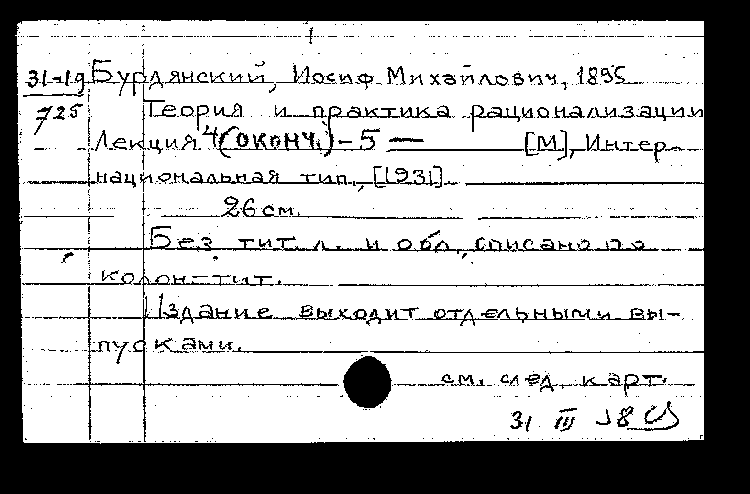 1
31-19 Бурдянский, Иосиф Михайлович, 1895
725 Теория и практика рационализации
Лекция 4(оконч.)-5 — [М], Интер-
национальная тип., [1931].
26 см.
Без тит. л. и обл., списано по
колон-тит.
Издание выходит отдельными вы-
пусками.
см. след. карт.
31 III